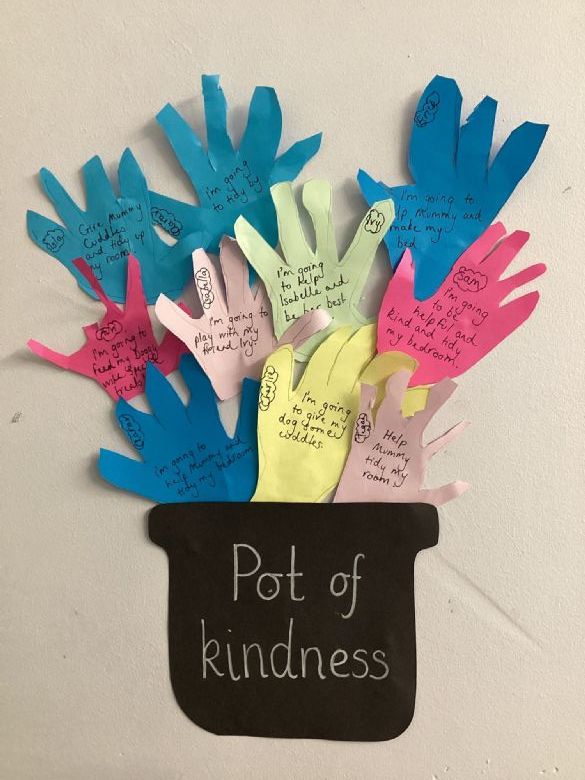 I'm going
to tidy by
I'm going to
help Mummy and
make my
bed
Lola
Give Mummy
cuddles
and tidy up
my room.
Ivy
I'm going
to help
Isabelle and
be her best
Sam
I'm going
to be
helpful and
kind and tidy
my bedroom.
I'm going to
play with my
friend Ivy.
I'm going to
feed my
treats
Charlie
I'm going
to give my
dog some
cuddles.
I'm going to
help Mummy and
tidy my bedroom
Help
Mummy
tidy my
room.
Pot of
kindness